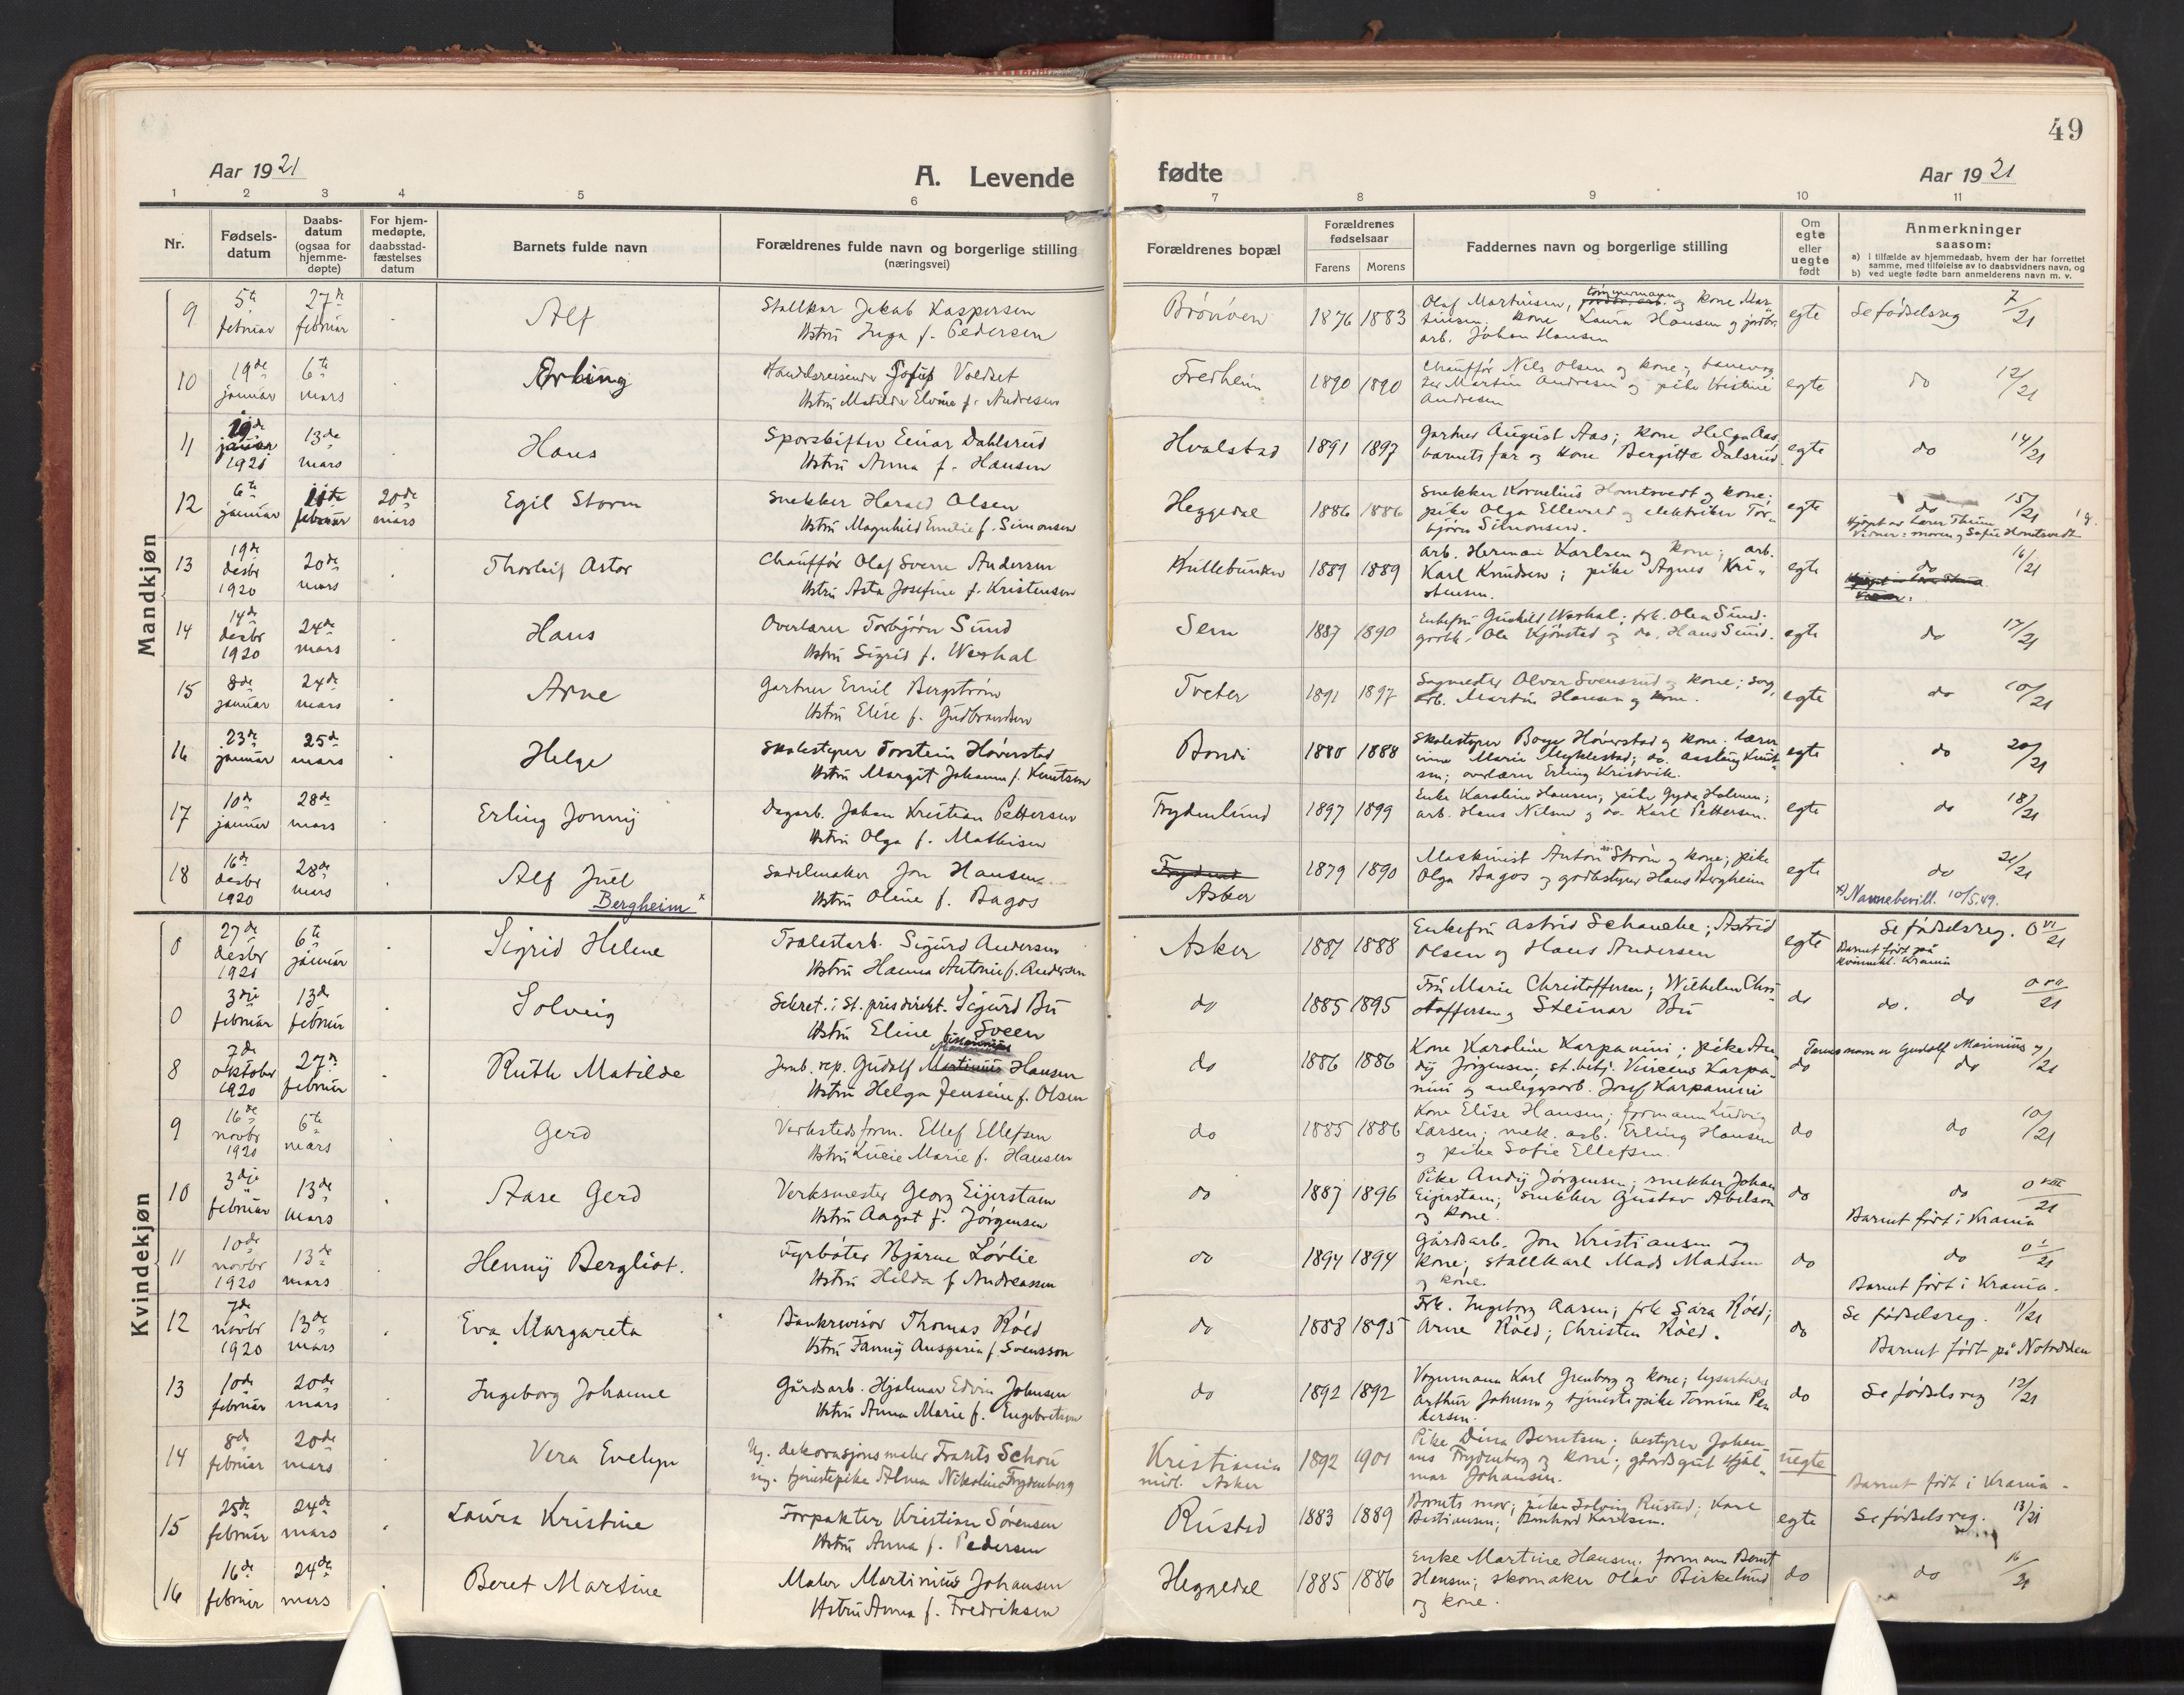 49
Aar 1921
A. Levende
fødte
Aar 1921
1 2 3 4 5 6 7 8 9 10 11
Nr.
Fødsels-
datum
Daabs-
datum
(ogsaa for
hjemme-
døpte)
For hjem-
medøpte,
daabsstad-
fæstelses
datum
Barnets fulde navn
Forældrenes fulde navn og borgerlige stilling
(næringsvei)
Forældrenes bopæl
Forældrenes
fødselsaar
Farens Morens
Faddernes navn og borgerlige stilling
Om
egte
eller
uegte
født
Anmerkninger
saasom:
a) i tilfælde av hjemmedaab, hvem der har forrettet
samme, med tilføielse av to daabsvidners navn, og
b) ved uegte fødte barn anmelderens navn m. v.
Mandkjøn
9 5te februar 27de februar Alf
Stallkar Jakob Kaspersen
Hstru Inga f. Pedersen
1876 1883
Olaf Martinsen, tømmermann og kone Mar-
tinsen. kone Laura Hansen og jordbr.
arb. Johan Hansen
egte Se fødselsreg 7/21
10 19de januar 6te mars Erling
Handelsreisende Josef Voldset
Hstru Matilde Elvine f. Andresen
Fredheim 1890 1890
Chauffør Nils Olsen og kone; banevog
ter Martin Andresen og pike Kristine
Andresen
egte do 12/21
11 19de januar 1921 13de mars Hans
Sporskifter Einar Dahlsrud
Hstru Anna f. Hansen
Hvalstad 1891 1897
Gartner August Aas; kone Helga Aas,
barnets far og kone Bergitte Dalsrud
egte do 14/21
12 6te januar 11te februar 20de mars Egil Storm
Snekker Harald Olsen
Hstru Magnhild Emilie f. Simonsen
Heggedal 1886 1886
Snekker Kornelius Homtsvedt og kone;
pike Olga Ellevold og elektriker Tor-
bjørn Simonsen.
egte do 15/21
Hjdøpt av lærer Thune
Vidner: moren og Sofie Homtsvedt
13 19de desbr 1920 20de mars Thorleif Astor
Chauffør Olaf Sverre Andersen
Hstru Asta Josefine f. Kristensen
1889 1889
arb. Herman Karlsen og kone; arb.
Karl Knudsen; pike Agnes Kri-
stensen.
egte do 16/21
14 14de desbr 1920 24de mars Hans
Overlærer Torbjørn Sund
Hstru Sigrid f. Werhal
Sem 1887 1890
Enkefru Gunhild Werhal; frk. Olea Sund.
grdbr. Ole Kjønstad og do. Hans Sund.
egte do 17/21
15 8de januar 24de mars Arne
Gartner Emil Bergstrøm
Hstru Elise f. Gudbrandsen
Tveter 1891 1897
Sagmester Alvar Svensrud og kone; sag
arb. Martin Hansen og kone.
egte do 10/21
16 23de januar 25de mars Helge
Skolestyrer Torstein Høverstad
Hstru Margit Johanne f. Knutsen
Bondi 1880 1888
Skolestyrer Boye Høverstad og kone. Lærer
inne Marie Myklestad; do. Aaslaug Knut-
sen; overlærer Erling Kristvik.
egte do 20/21
17 10de januar 28de mars Erling Jonny
Dagarb. Johan Kristian Pettersen
Hstru Olga f. Mathisen
Frydenlund 1897 1899
Enke Karoline Hansen, pike Gyda Holmen;
arb. Hans Nilsen og do. Karl Pettersen.
egte do 18/21
18 16de desbr 1920 28de mars Alf Juel
Bergheim x
Sadelmaker Jon Hansen
Hstru Oline f. Bagos
Asker 1879 1890
Maskinist Anton Strøm og kone; pike
Olga Bagos og godbestyrer Hans Bergheim
egte do 21/21
x) Navnebevill. 10/5.49.
Kvindekjøn
0 27de desbr 1920 6te januar Sigrid Helene
Trælastarb. Sigurd Andersen
Hstru Hanna Antonie f. Andersen
Asker 1881 1888
Enkefru Astrid Schancke; Astrid
Olsen og Hans Andersen
egte Se fødselsreg. 0 VI/21
Barnet født på
kvinnekl. Krania
0 3dje februar 13de februar Solveig
Sekret. i St. prisdirekt. Sigurd Bu
Hstru Eline f. Sveen
do 1885 1895
Fru Marie Christoffersen; Wilhelm Chri-
stoffersen og Steinar Bu
do do. do 0 VII/21
8 7de oktober 1920 27de februar Ruth Matilde
Jernb. rep. Gudolf Martinius Hansen
Hstru Helga Jensine f. Olsen
do 1886 1886
Kone Karoline Karpanini; pike An-
dy Jørgensen; st.betj. Vincens Karpa-
nini og anliggsarb. Josef Karpanini
do Farens navn er Gudolf Marinius
do 9/21
9 16de novbr 1920 6te mars Gerd
Verkstedsform. Ellef Ellefsen
Hstru Lucie Marie f. Hansen
do 1885 1886
Kone Elise Hansen; formann Ludvig
Larsen; mek. arb. Erling Hansen
og pike Sofie Ellefsen.
do do 10/21
10 3dje februar 13de mars Aase Gerd
Verksmester Georg Eijerstam
Hstru Aagot f. Jørgensen
do 1887 1896
Pike Andy Jørgensen; snekker Johan
Eijerstam; snekker Gustav Abelson
og kone.
do do 0 VIII/21
Barnet født i Krania
11 10de novbr 1920 13de mars Henny Bergliot.
Fyrbøter Bjarne Løvlie
Hstru Hilda f. Andreassen
do 1894 1894
Gårdsarb. Jon Kristiansen og
kone; stallkarl Mads Madsen
og kone.
do do 0 I/21
Barnet født i Krania.
12 7de novbr 1920 13de mars Eva Margareta
Bankrevisor Thomas Røed
Hstru Fanny Ansgaria f. Svensson
do 1888 1895
Frk. Ingeborg Aasen; frk Sara Røed;
Arne Røed; Christen Røed.
do Se fødselsreg. 11/21
Barnet født på Notodden
13 10de februar 20de mars Ingeborg Johanne
Gårdsarb. Hjalmar Edvin Johnsen
Hstru Anna Marie f. Engebretsen
do 1892 1892
Vognmann Karl Grenborg og kone;
Arthur Johnsen og tjenestepike Tomine Pe-
dersen.
do Se fødselsreg 12/21
14 8de februar 20de mars Vera Evelyn
Ug. dekorasjonsmaler Frants Schou
ug. tjenestepike Alma Nikoline Frydenberg
Kristiania
midl. Asker 1892 1901
Pike Dina Berntsen; bestyrer Johan-
nes Frydenberg og kone; gårdsgut Hjal-
mar Johansen.
uegte
Barnet født i Krania.
15 25de februar 24de mars Laura Kristine
Forpakter Kristian Sørensen
Hstru Anna f. Pedersen
Rustad 1883 1889
Barnets mor; pike Solveig Rustad; Karl
Bastiansen; Bernhard Karlsen.
egte Se fødselsreg. 13/21
16 16de februar 24de mars Beret Martine
Maler Martinius Johansen
Hstru Anna f. Fredriksen
Heggedal 1885 1886
Enke Martine Hansen. formann Bernt
Hansen; skomaker Olav Birkelund
og kone.
do do 16/21